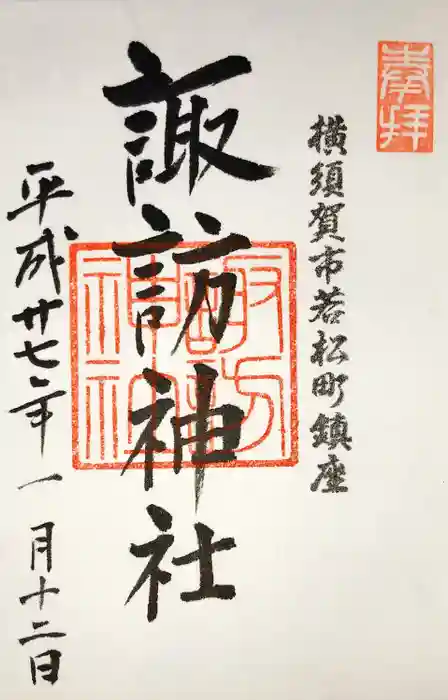 奉拝
横須賀市若松町鎮座
諏訪神社
諏訪
神社
平成廿七年一月十二日